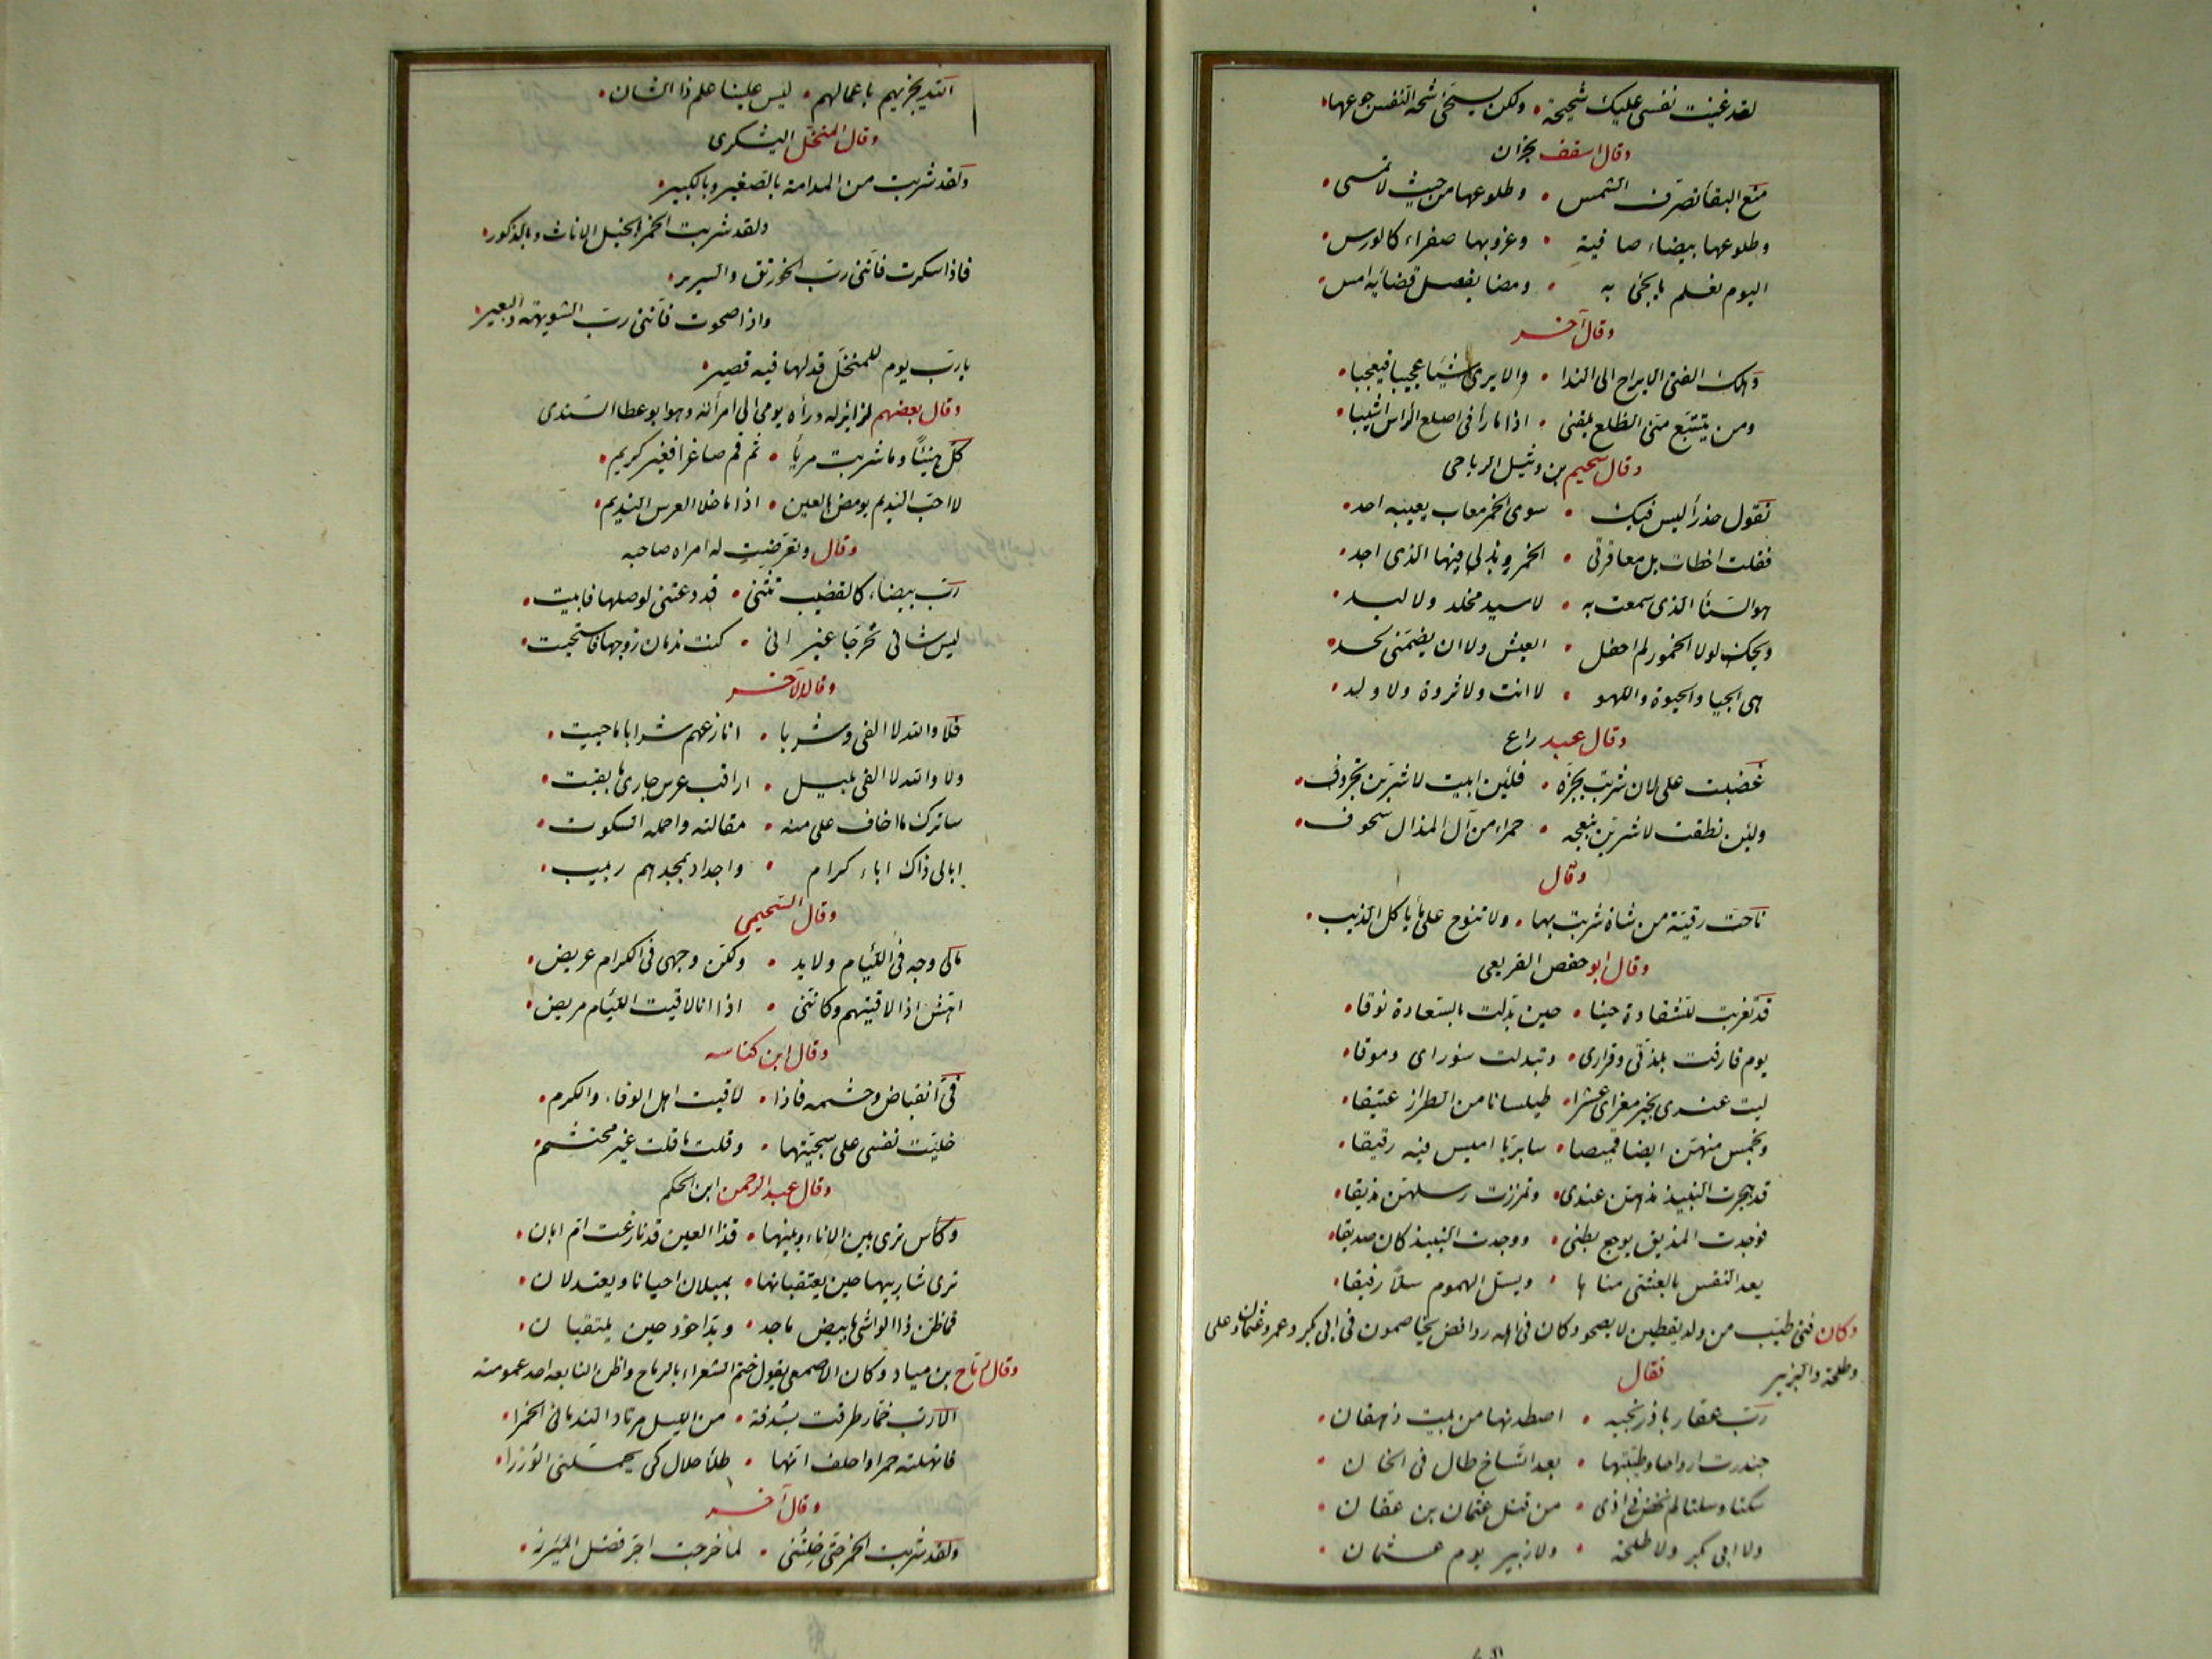 لقد غنيت نفسى عليك شحيحة • ولكن يسخى شحة النفس جوعها
وقال اسقف نجران
منع البقا تصرف الشمس • وطلوعها من حيث لا تمسى
وطلوعها بيضاء صافية • وغروبها صفراء كالورس
اليوم نعلم ما يجئ به • ومضا بفصل قضائه امس
وقال آخر
الفتى الا يراح الى الندا • والا يرى شيئا عجيبا فيعجبا
ومن يتتبع منى الظلع يلقنى • اذا ما رآنى اصلع الراس اشيبا
وقال سحيم بن وثيل الرياحى
تقول حذرا ليس فيك • سوى الخمر معاب يعيبه احد
فقلت اخطات بل معاقرتى • الخمر وبذلى فيها الذى اجد
هو السنا الذى سمعت به • لا سيد مخلد ولا لبد
ويحك لولا الخمور لم احفل • العيش ولا ان يضمنى لحد
هى الحيا والحيوة واللهو • لا انت ولا ثروة ولا ولد
وقال عبيد راع
غضبت على لان شربت بجزه • فلئن ابيت لاشربن بخروف
ولئن نطقت لاشربن بنعجه • حمراء من آل المذال سحوف
وقال
ناحت رقية من شاة شربت بها • ولا تنوح على ما ياكل الذيب
وقال ابو حفص القريعى
قد تغربت للشقاوة حينا • حين بدلت بالسعادة نوقا
يوم فارقت بلدتى وقرارى • وتبدلت سوراى وموقا
ليت عندى بخير معزاى عشرا • طيلسانا من الطراز عتيقا
وبخمس منهن ايضا قميصا • سابريا اميس فيه رقيقا
قد هجرت النبيذ مذ هن عندى • وتمززت رسلهن مذيقا
فوجدت المذيق يوجع بطنى • ووجدت النبيذ كان صديقا
يعد النفس بالعشى مناها • ويسل الهموم سلا رفيقا
وكان فتى طيب من ولد يقطين لا يصحو وكان فى اهله روافض يخاصمون فى ابى بكر وعمر وعثمان وعلى
وطلحة والزبير فقال
رب عقار باذرنجيه • اصطدتها من بيت دهقان
جندرت ارواحا وطيبتها • بعد اتساخ طال فى الخان
سكنا وسلنا لم نخض فى اذى • من قتل عثمان بن عفان
ولا ابى بكر ولا طلحة • ولا زبير يوم عثمان
الله يجزيهم باعمالهم • ليس علينا علم ذا الشان
وقال المنخل اليشكرى
ولقد شربت من المدامة بالصغير وبالكبير
ولقد شربت الخمر بالخيل الاناث وبالذكور
فاذا سكرت فاننى رب الخورنق والسرير
واذا صحوت فاننى رب الشويهة والبعير
يا رب يوم للمنخل قد لها فيه قصير
وقال بعضهم لزاير له ورآه يومى الى امرأته وهو ابو عطا السندى
كل هنيئا وما شربت مريا • ثم قم صاغرا فغير كريم
لا احب النديم يومض بالعين • اذا ما خلا لعرس النديم
وقال وتعرضت له امراه صاحبه
رب بيضاء كالقضيب تثنى • قد دعتنى لوصلها فابيت
ليس شانى تحرجا غير انى • كنت ندمان زوجها فاستحيت
وقال الآخر
فلا والله لا الفى وشربا • انازعهم شرابا ما حييت
ولا والله لا الفى بليل • اراقب عرس جارى ما بقيت
ساترك ما اخاف على منه • مقالته واحمله السكوت
ابا لى ذاك اباء كرام • واجداد بمجدهم ربيت
وقال السحيمى
مالى وجه فى اللئام ولا يد • ولكن وجهى فى الكرام عريض
اهش اذا لاقيتهم وكاننى • اذا انا لاقيت اللئام مريض
وقال ابن كناسه
فى انقباض وحشمه فاذا • لاقيت اهل الوفاء والكرم
خليت نفسى على سجيتها • وقلت ما قلت غير محتشم
وقال عبد الرحمن ابن الحكم
وكأس ترى بين الاناء وبينها • قذا العين قد نازعت ام ابان
ترى شاربيها حين يعتقبانها • يميلان احيانا ويعتدلان
فما ظن ذا الواشى بابيض ماجد • وبداء خود حين يلتقيان
وقال رماح بن مياد وكان الاصمعى يقول ختم الشعراء بالرماح واظن النابغه احد عمومته
الا رب خمار طرقت بسدفة • من الليل مرتادا لندمانى الخمرا
فانهلته خمرا واحلف انها • طلا حلال كى يحملنى الوزرا
وقال آخر
ولقد شربت الخمر حتى خلتنى • لما خرجت اجر فضل الميزر